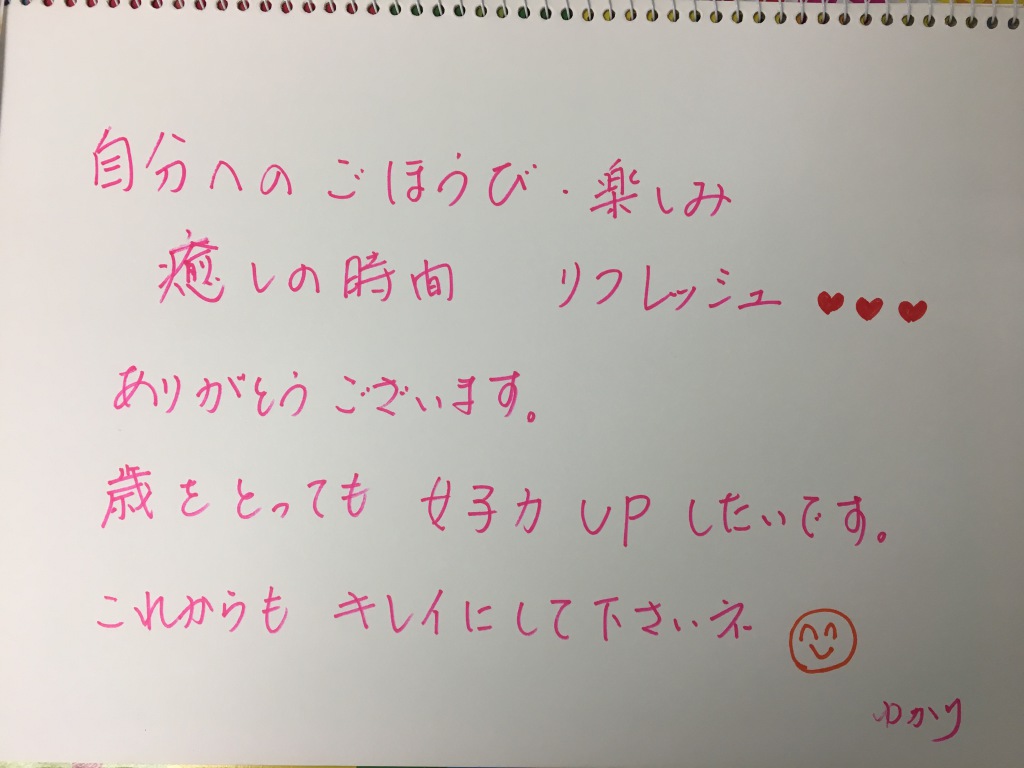 自分へのごほうび・楽しみ
癒しの時間 リフレッシュ ♥♥♥
ありがとうございます。
歳をとっても 女子力 UP したいです。
これからも キレイにして下さいネ
ゆかり